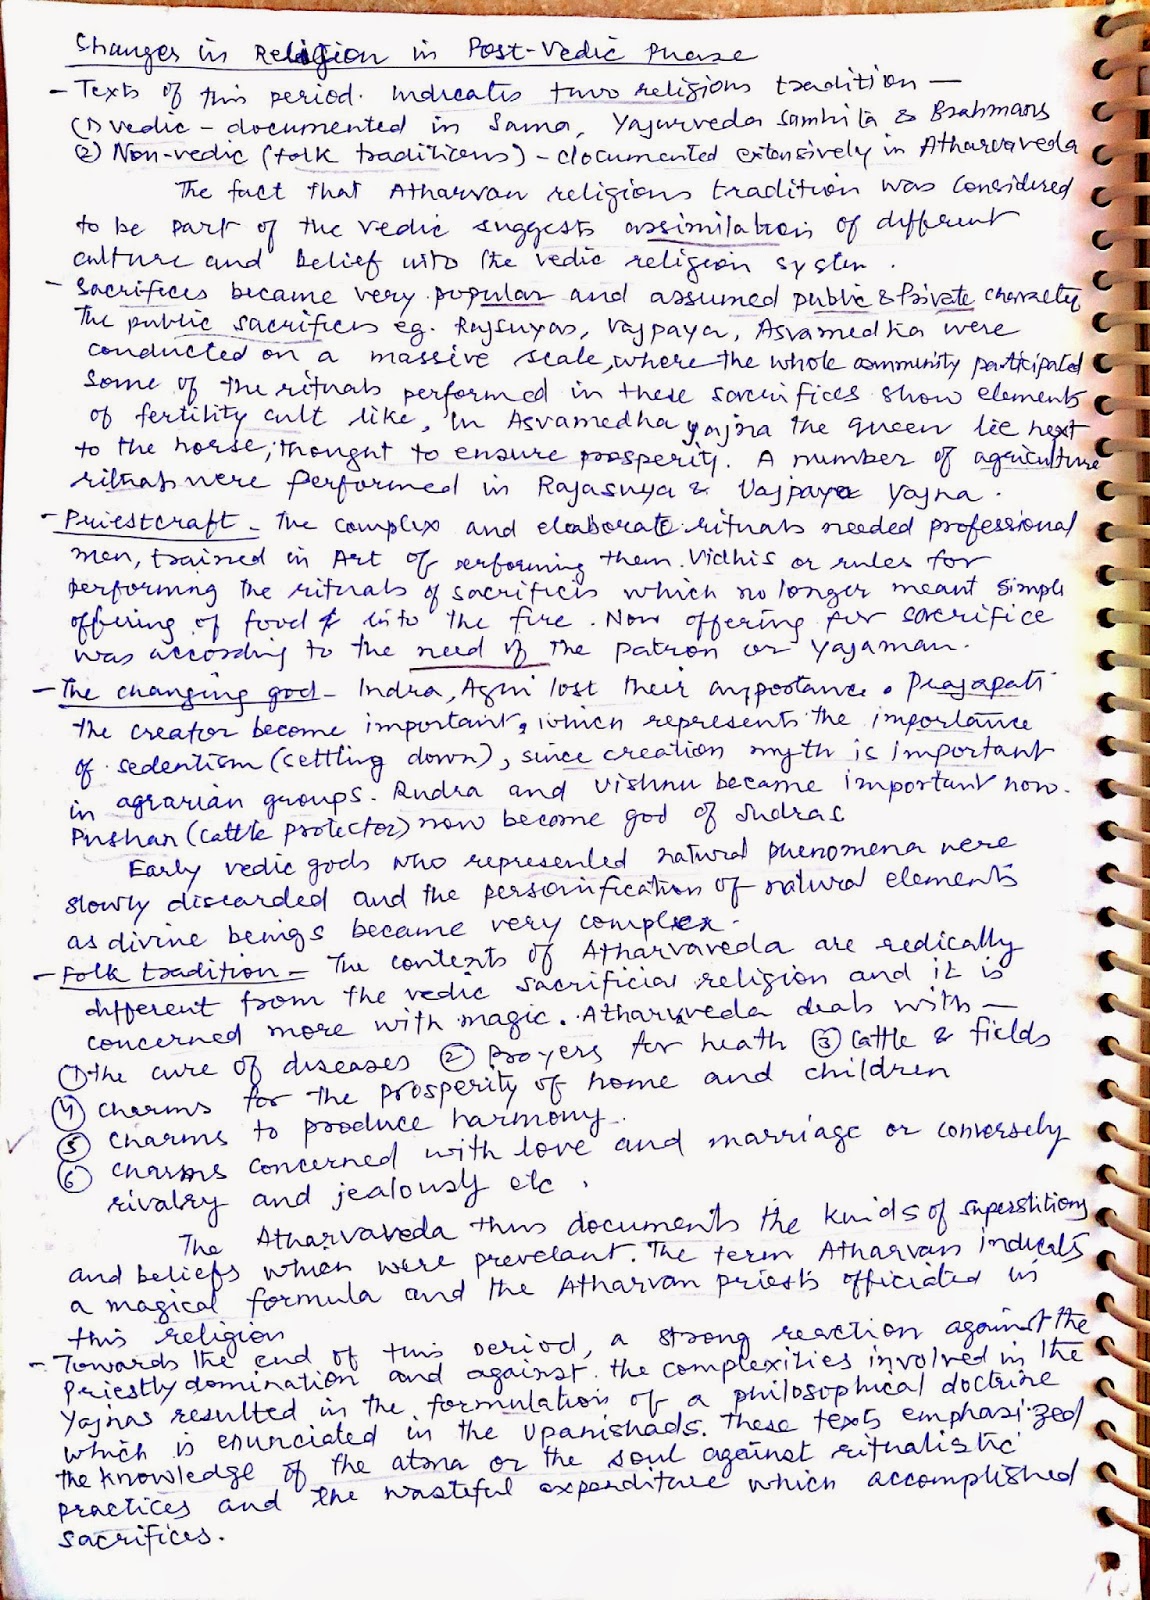 Changes in Religion in Post-Vedic Phase
- Texts of this period. Indicates two religious tradition —
(1) vedic - documented in Sama, Yajurveda Samhita & Brahmans
(2) Non-vedic (folk traditions) - documented extensively in Atharvaveda
The fact that Atharvan religious tradition was considered
to be part of the vedic suggests assimilation of different
culture and belief into the vedic religion system.
- Sacrifices became very popular and assumed public & Private character
The public sacrifices eg. Rajsuyas, Vajpaya, Asvamedha were
conducted on a massive scale, where the whole community participated
Some of the rituals performed in these sacrifices show elements
of fertility cult like, In Asvamedha yajna the queen lie next
to the horse; thought to ensure prosperity. A number of agriculture
rituals were performed in Rajasuya & Vajpaya Yajna.
- Priestcraft - The complex and elaborate rituals needed professional
men, trained in Art of performing them. Vidhis or rules for
performing the rituals of sacrifices which no longer meant simple
offering of food into the fire. Now offering for sacrifice
was according to the need of the patron or Yajaman.
- The changing god - Indra, Agni lost their importance. Prajapati
the creator become important, which represents the importance
of sedentism (settling down), since creation myth is important
in agrarian groups. Rudra and Vishnu became important now.
Pushan (cattle protector) now become god of Sudras
Early vedic gods who represented natural phenomena were
slowly discarded and the personification of natural elements
as divine beings became very complex.
- Folk tradition - The contents of Atharvaveda are redically
different from the vedic sacrificial religion and it is
concerned more with magic. Atharvveda deals with —
(1) the cure of diseases (2) prayers for heath (3) Cattle & fields
(4) charms for the prosperity of home and children
(5) charms to produce harmony.
(6) charms concerned with love and marriage or conversely
rivalry and jealously etc.
The Atharvaveda thus documents the kinds of superstitions
and beliefs which were prevelant. The term Atharvan indicates
a magical formula and the Atharvan priests officiated in
this religion
- Towards the end of this period, a strong reaction against the
priestly domination and against the complexities involved in the
Yajnas resulted in the formulation of a philosophical doctrine
which is enunciated in the Upanishads. These texts emphasized
the knowledge of the atma or the soul against ritualistic
practices and the wasteful expenditure which accomplished
sacrifices.